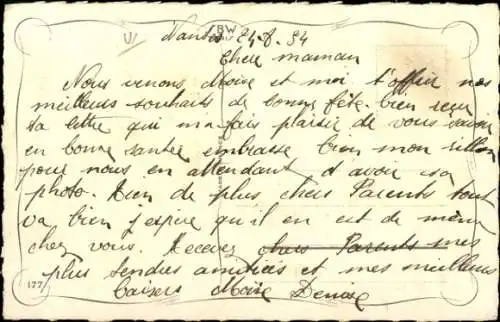 BW
Nantes 24-8. 34
Chère maman
Nous venons Moïse et moi t'offrir nos
meilleurs souhaits de bonne fête. bien reçu
ta lettre qui m'a fais plaisir de vous savoir
en bonne santée embrasse bien mon
pour nous en attendant d'avoir sa
photo. Rien de plus chers Parents tout
va bien j'espère qu'il en est de même
chez vous. Recevez chers Parents mes
plus tendres amitiés et mes meilleurs
baisers Moïse Denise
177